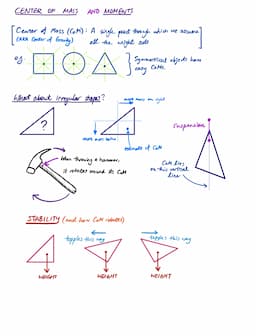 CENTER OF MASS AND MOMENTS
Center of Mass (CoM): A single point through which we assume
(AKA Center of Gravity) all the weight acts
eg.
Symmetrical objects have
easy CoMs.
What about irregular shapes?
more mass on right
?
more mass below
estimate of CoM
Suspension
When throwing a hammer,
it rotates around its CoM
CoM lies
on this vertical
line
STABILITY (and how CoM relates)
topples this way
topples this way
WEIGHT
WEIGHT
WEIGHT